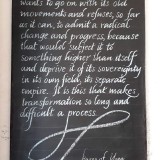 wants to go on with its old
movements and refuses, so far
as it can, to admit a radical
change and progress, because
that would subject it to
something higher than itself
and deprive it of its sovereignty
in its own field, its separate
empire. It is this that makes
transformation so long and
difficult a process.